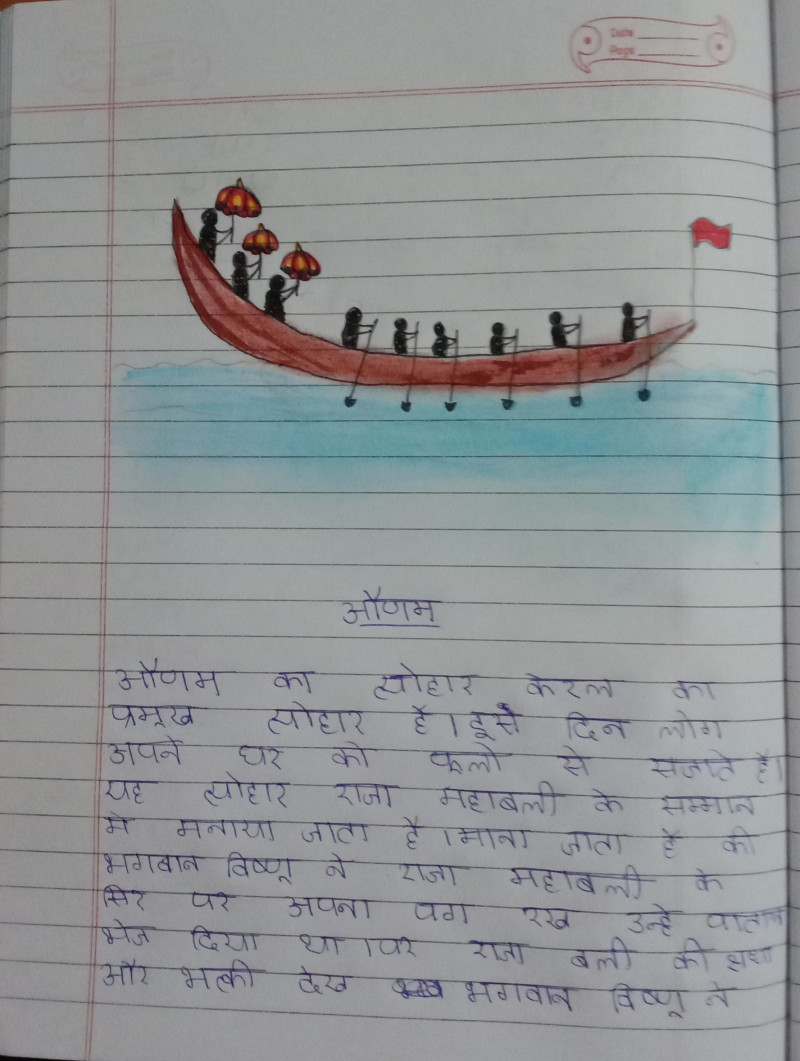 Date
Page
औणम
औणम का त्योहार केरल का
प्रमूख त्योहार है। इसे दिन लोग
अपने घर को फूलो से सजाते है।
यह त्योहार राजा महाबली के सम्मान
मे मनाया जाता है। माना जाता है की
भगवान विष्णू ने राजा महाबली के
सिर पर अपना पग रख उन्हे पाताल
भेज दिया था। पर राजा बली की
और भक्ती देख भगवान विष्णू ने